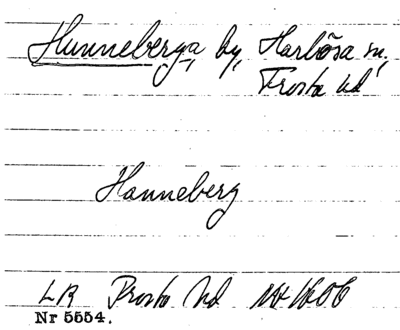 Hunneberga by, Harlösa sn,
Frosta hd
Hanneberg
LR Frosta hd
Nr 5554.